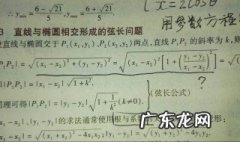 ∴ y_min = (6-√21)/5 , y_max = (6+√21)/5
x=2cosθ
用参数方程
3 直线与椭圆相交形成的弦长问题
直线与椭圆交于 P₁(x₁,y₁) ,P₂(x₂,y₂)两点,直线 P₁P₂ 的斜率为 k,
|P₁P₂|=√((x₁-x₂)²+(y₁-y₂)²)=√((x₁-x₂)²[1+((y₁-y₂)/(x₁-x₂))²])
|P₁P₂|=|x₁-x₂|√(1+k²),
?
同理可得|P₁P₂|=|y₁-y₂|√(1+1/k²)(k≠0). (弦长公式)
的求法通常使用根与系
=√((x₁+x₂)²-4x₁x₂) |y₁-y₂|=√((y₁+y₂)²-4y₁y₂).
广东龙网